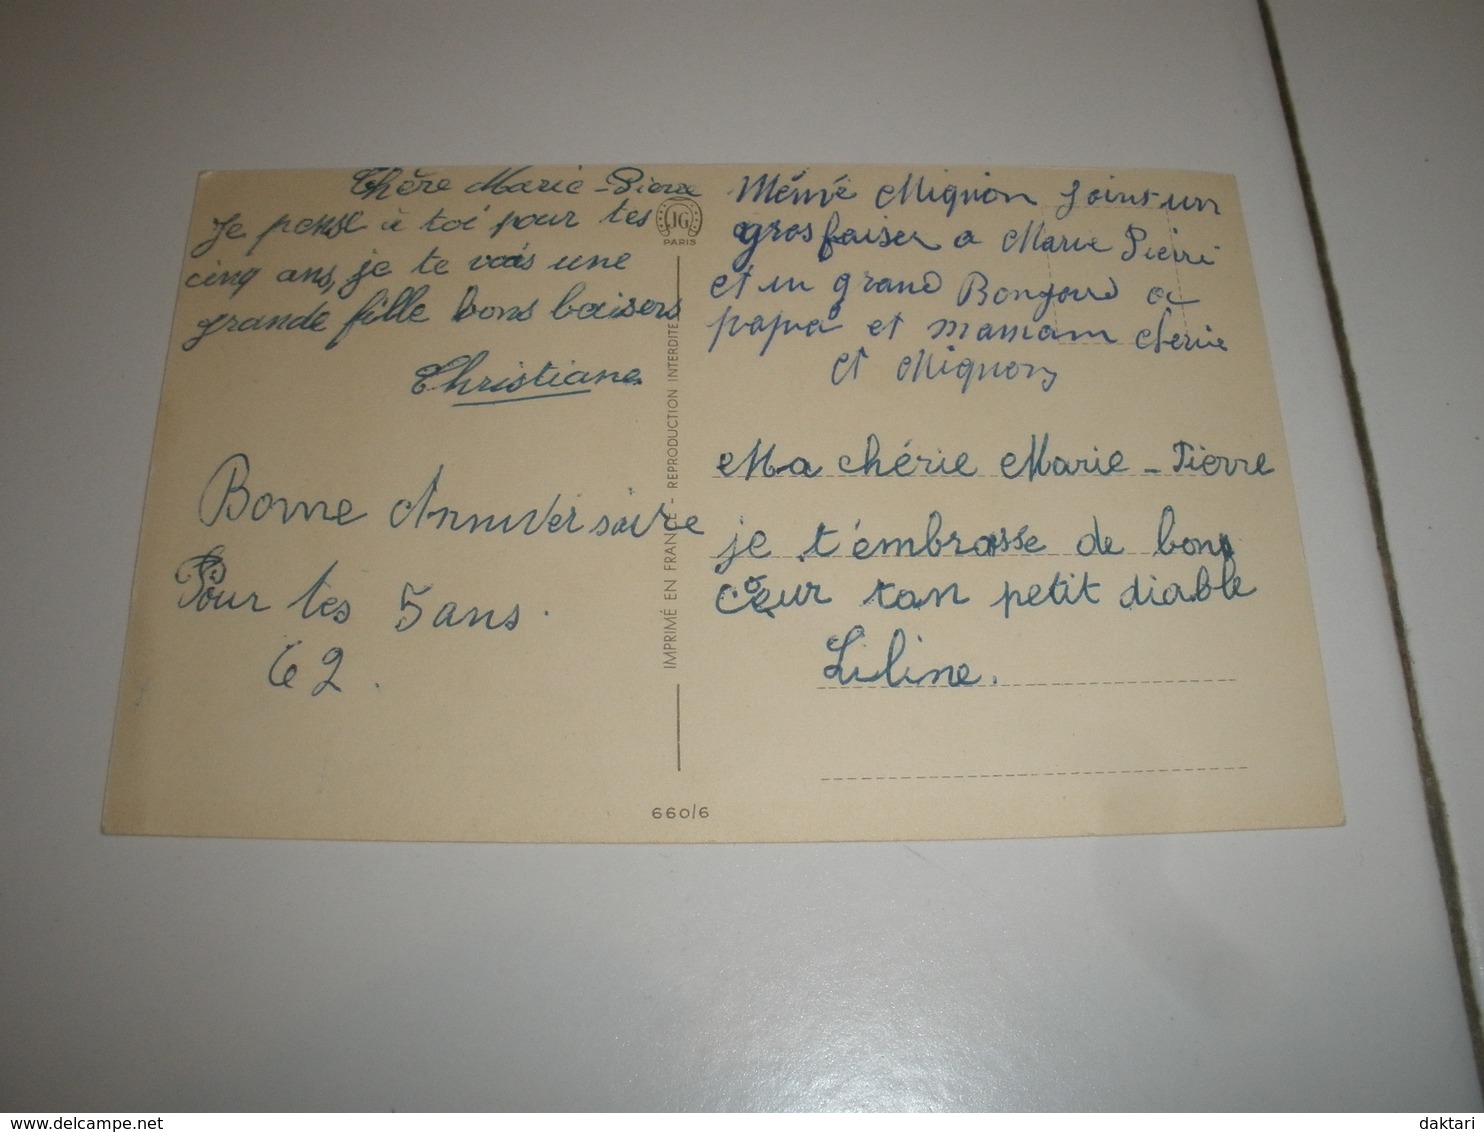 Chère Marie-Pierre
Je pense à toi pour tes
cinq ans, je te vois une
grande fille bons baisers
Christiane
Bonne Anniversaire
Pour tes 5 ans.
62.
JG
PARIS
IMPRIMÉ EN FRANCE - REPRODUCTION INTERDITE
660/6
Mémé Mignon Joins un
gros baiser a Marie Pierre
et un grand Bonjour a
papa et maman cherie
et Mignon
Ma chérie Marie-Pierre
je t'embrasse de bon
cœur tan petit diable
Liline.
daktari